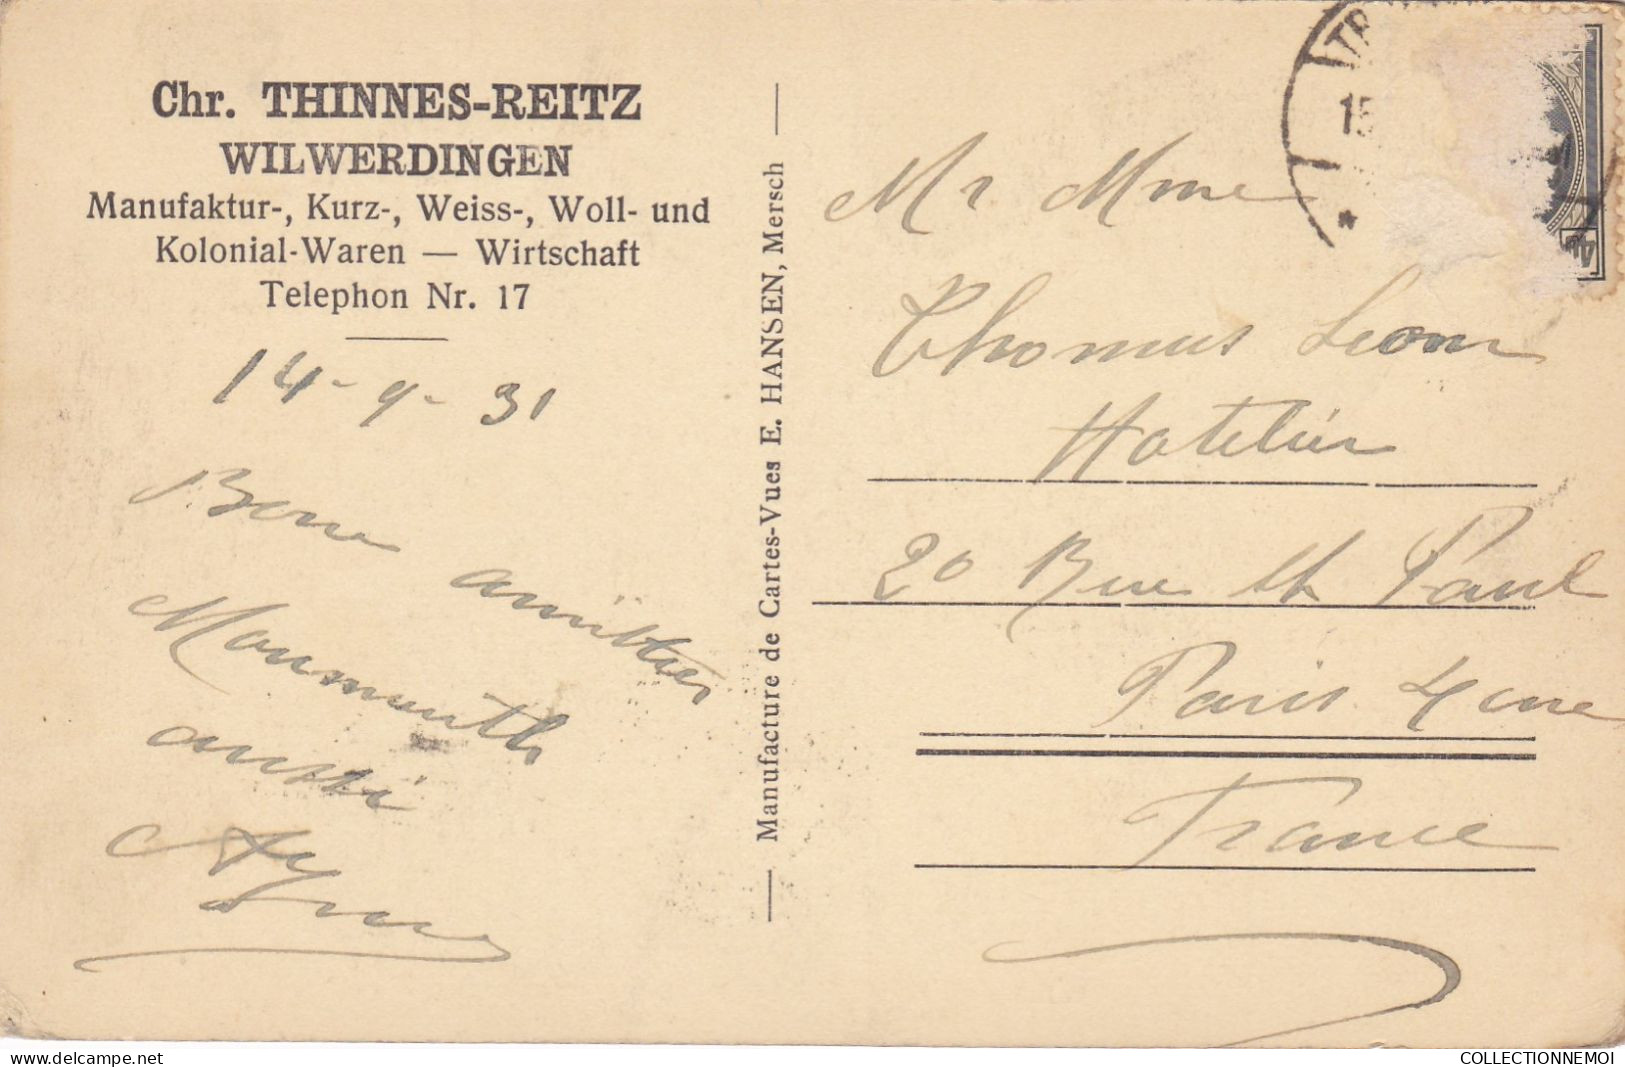 Chr. THINNES-REITZ
WILWERDINGEN
Manufaktur-, Kurz-, Weiss-, Woll- und
Kolonial-Waren — Wirtschaft
Telephon Nr. 17
14-9-31
amitiés
aussi
Manufacture de Cartes-Vues E. HANSEN, Mersch
TR
15
Mr Mme
Thomas Leon
Hotelier
20 Rue St Paul
Paris 4 eme
France
COLLECTIONNEMOI